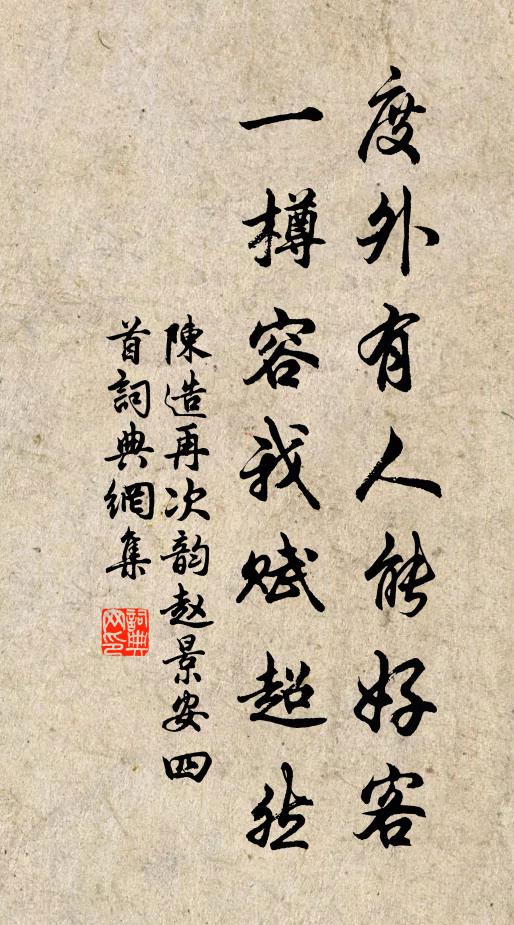 度外有人能好客
一樽容我赋超然
陳造再次韵赵景安四
首詞典網集
詞典
网印